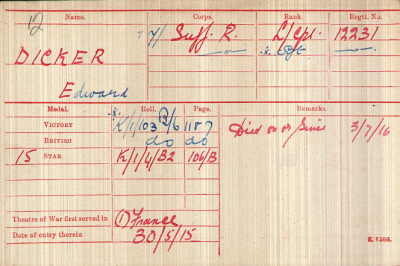 Name. Corps. Rank. Regtl. No.
12
DICKER 7/ Suff. R. L/Cpl. 12231
Edward
Medal. Roll. Page. Remarks.
VICTORY K/1/103 B/6 1187 Died on or since 3/7/16
BRITISH do do
15 STAR K/1/4/B2 106/B
Theatre of War first served in (1) France
Date of entry therein 30/5/15
K. 1380.